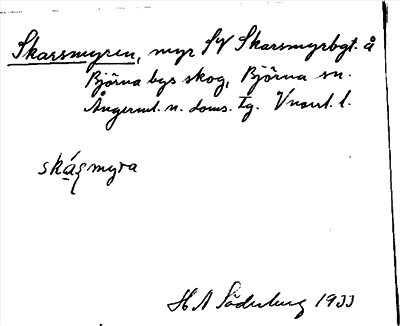 Skarsmyren, myr SV Skarsmyrbgt. å
Björna bys skog, Björna sn.
Ångerml. n. doms. tg. Vnorrl. l.
skáʂmyra
H A Söderberg 1933